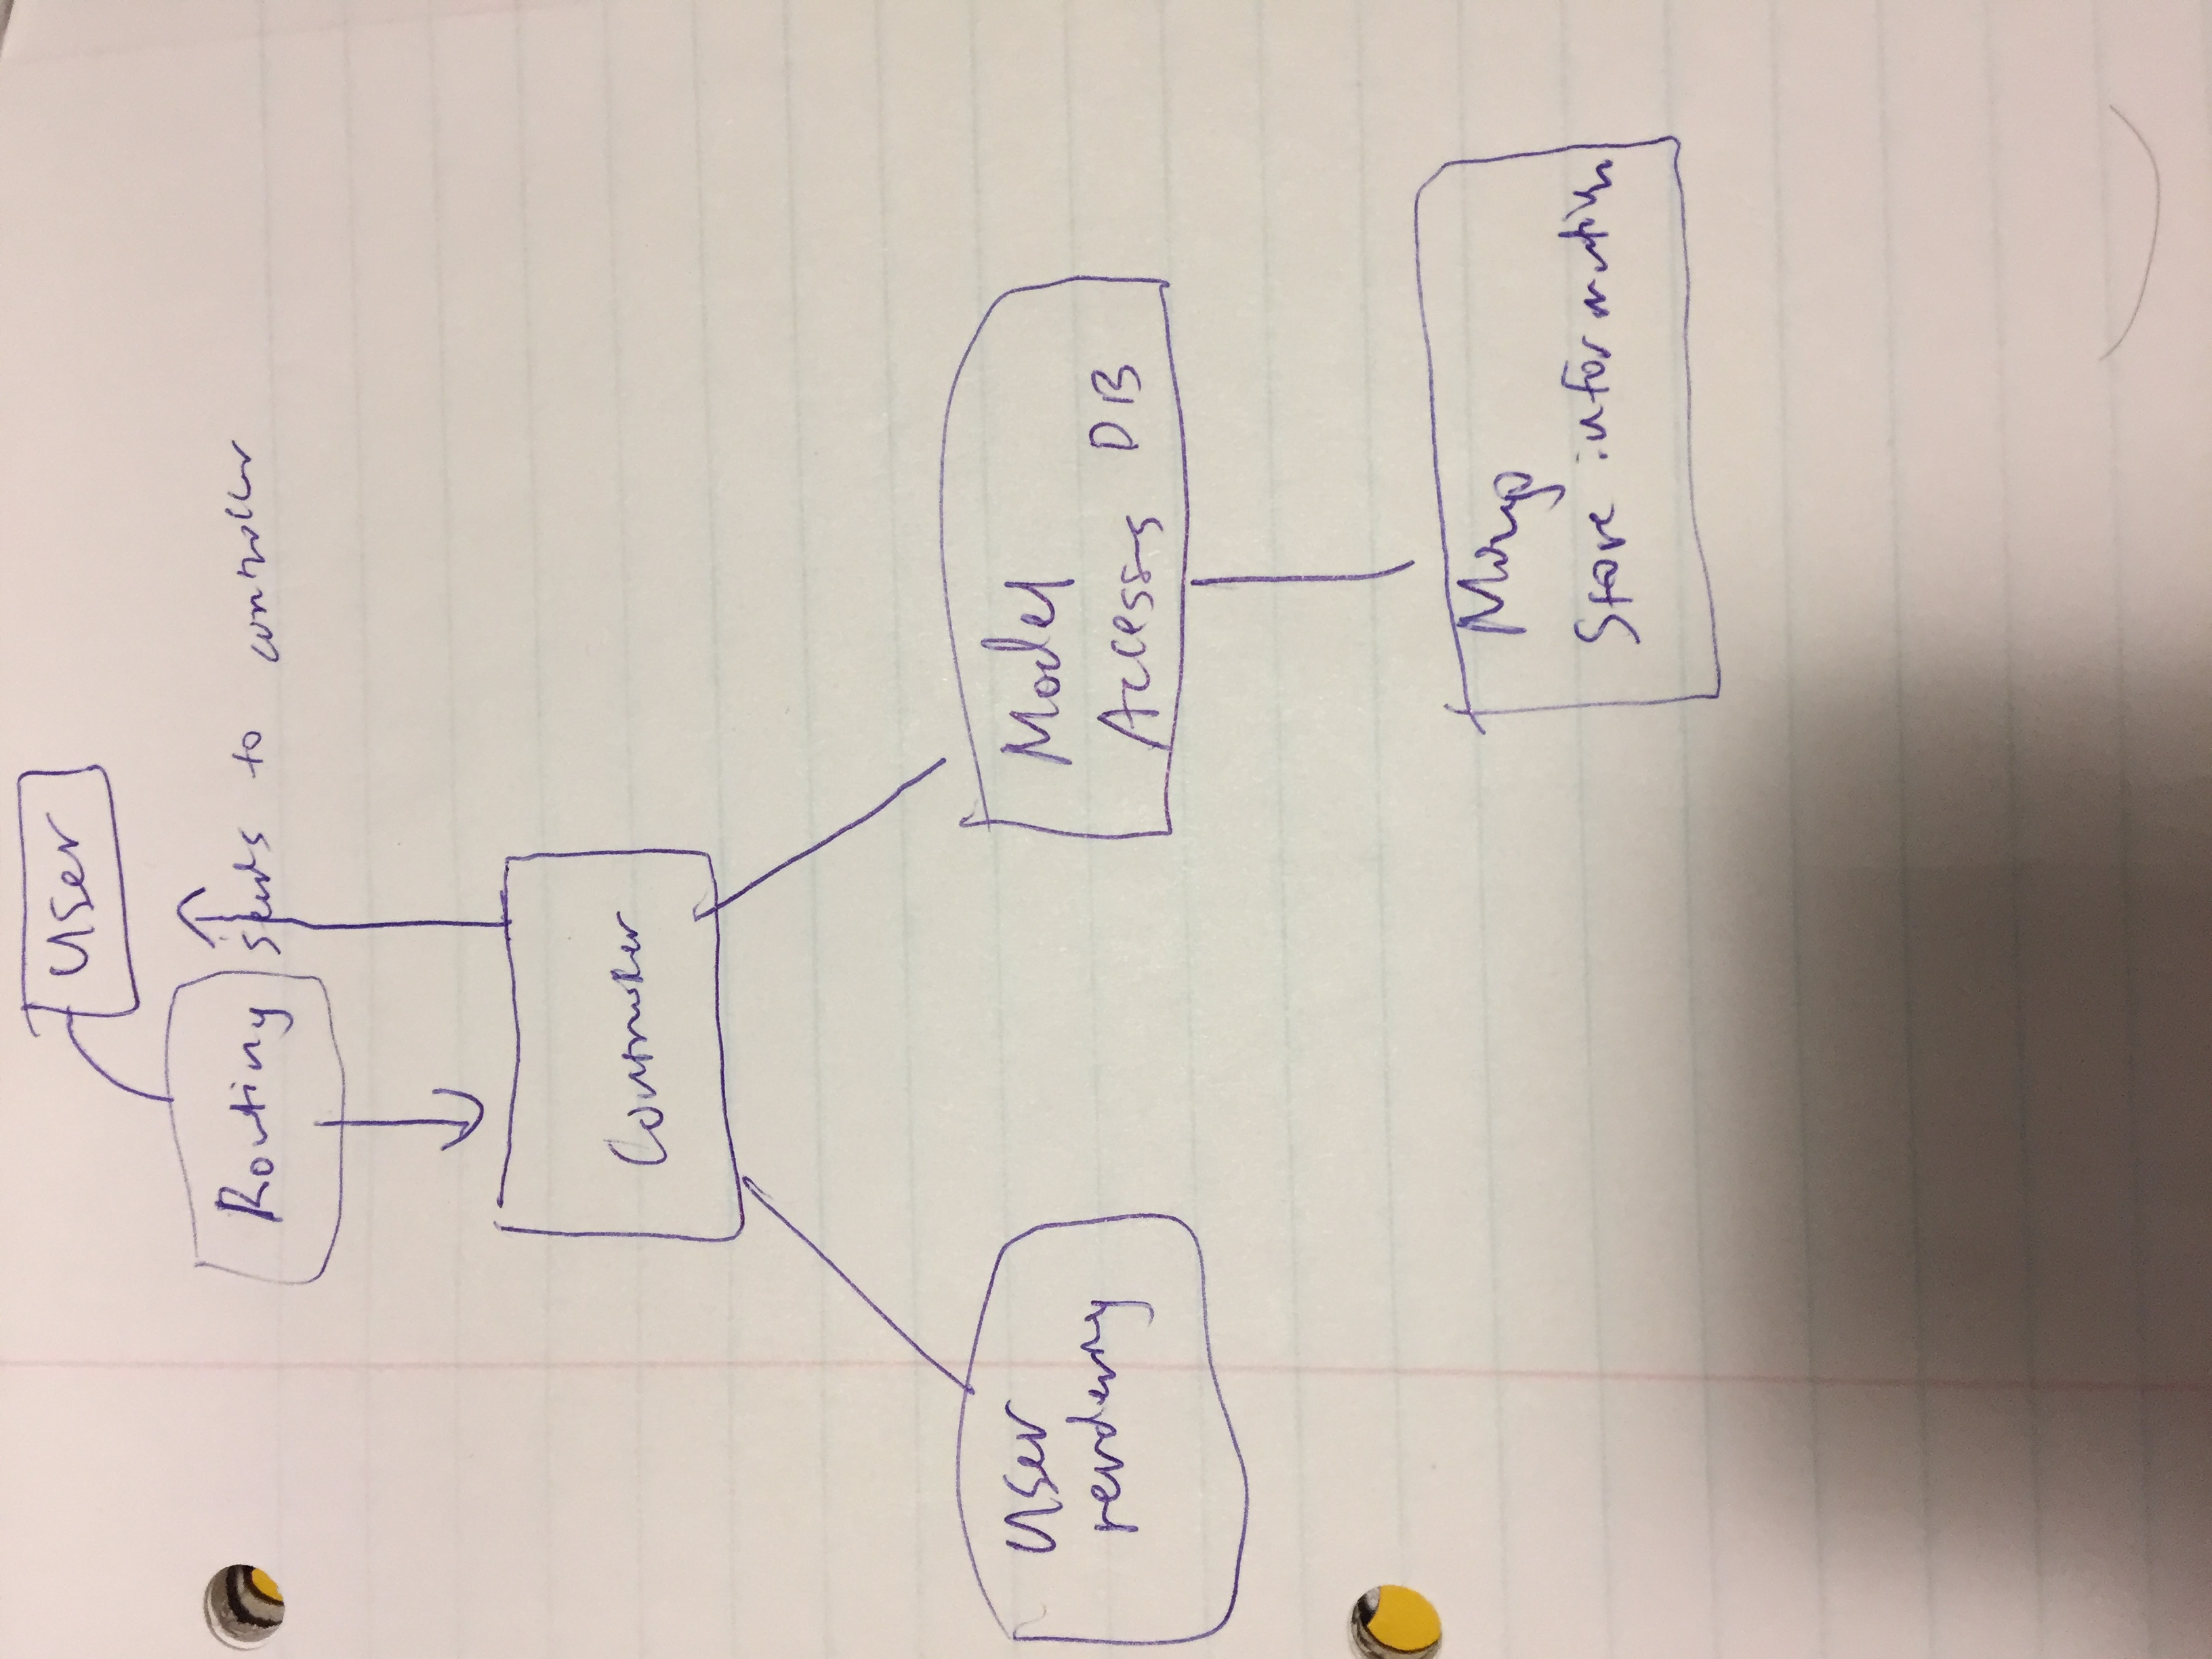 User
Routing sends to controller
Controller
User
rendering
Model
Accesses DB
Mongo
Store information